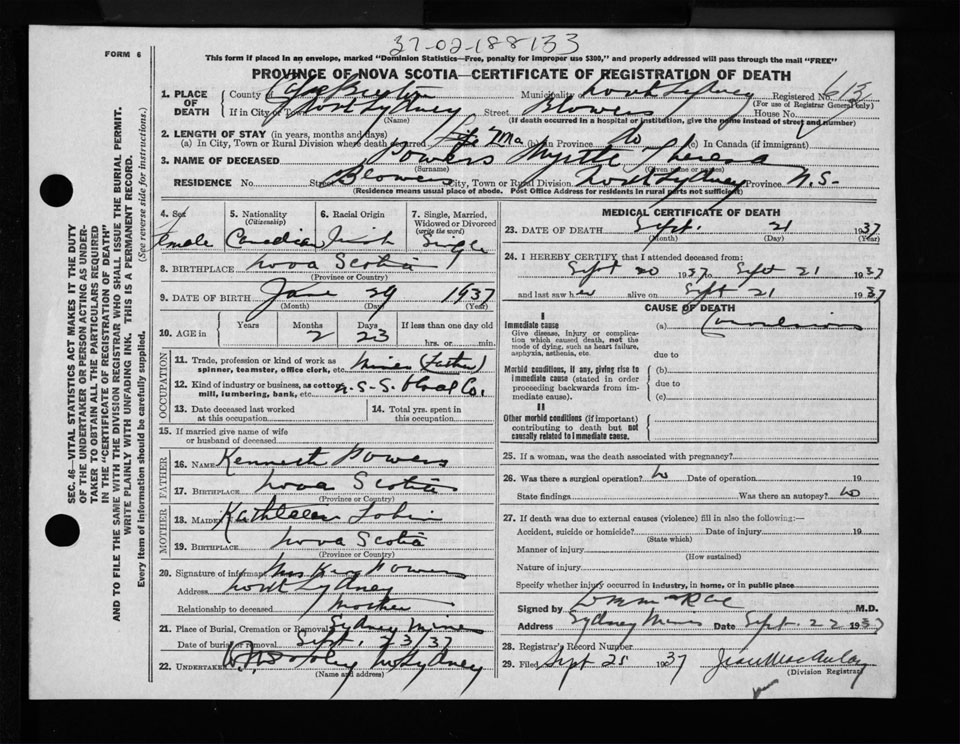 37-02-188133
FORM 6
This form if placed in an envelope, marked "Dominion Statistics—Free, penalty for improper use $300," and properly addressed will pass through the mail "FREE"
PROVINCE OF NOVA SCOTIA—CERTIFICATE OF REGISTRATION OF DEATH
1. PLACE OF DEATH County of Cape Breton Municipality of North Sydney Registered No. 613
(For use of Registrar General only)
If in City or Town North Sydney Street Blowers House No.
(Name) (If death occurred in a hospital or institution, give the name instead of street and number)
2. LENGTH OF STAY (in years, months and days)
(a) In City, Town or Rural Division where death occurred Life (b) in Province do (c) In Canada (if immigrant)
3. NAME OF DECEASED Powers Myrtle Theresa
(Surname) (Given name or names)
RESIDENCE No. Street Blowers City, Town or Rural Division North Sydney Province N.S.
(Residence means usual place of abode. Post Office Address for residents in rural parts not sufficient)
4. Sex Female
5. Nationality (Citizenship) Canadian
6. Racial Origin Irish
7. Single, Married, Widowed or Divorced (write the word) Single
8. BIRTHPLACE Nova Scotia
(Province or Country)
9. DATE OF BIRTH June 29 1937
(Month) (Day) (Year)
10. AGE in Years Months Days If less than one day old
2 23 hrs. or min.
OCCUPATION
11. Trade, profession or kind of work as spinner, teamster, office clerk, etc. Miner (Father)
12. Kind of industry or business, as cotton mill, lumbering, bank, etc. N.S.S. & Coal Co.
13. Date deceased last worked at this occupation
14. Total yrs. spent in this occupation
15. If married give name of wife or husband of deceased
FATHER
16. NAME Kenneth Powers
17. BIRTHPLACE Nova Scotia
(Province or Country)
MOTHER
18. MAIDEN NAME Kathleen Tobin
19. BIRTHPLACE Nova Scotia
(Province or Country)
20. Signature of informant Mrs Ken Powers
Address North Sydney
Relationship to deceased Mother
21. Place of Burial, Cremation or Removal Sydney Mines
Date of burial or removal Sept. 23 37
22. UNDERTAKER Dooley N. Sydney
(Name and address)
MEDICAL CERTIFICATE OF DEATH
23. DATE OF DEATH Sept. 21 1937
(Month) (Day) (Year)
24. I HEREBY CERTIFY that I attended deceased from:
Sept 20 1937 to Sept 21 1937
and last saw her alive on Sept 21 1937
CAUSE OF DEATH
I
Immediate cause (a) Convulsions
Give disease, injury or complication which caused death, not the mode of dying, such as heart failure, asphyxia, asthenia, etc. due to
Morbid conditions, if any, giving rise to immediate cause (stated in order proceeding backwards from immediate cause). (b)
due to
(c)
II
Other morbid conditions (if important) contributing to death but not causally related to immediate cause.
25. If a woman, was the death associated with pregnancy?
26. Was there a surgical operation? No Date of operation 19
State findings Was there an autopsy? No
27. If death was due to external causes (violence) fill in also the following:—
Accident, suicide or homicide? Date of injury 19
(State which)
Manner of injury
(How sustained)
Nature of injury
Specify whether injury occurred in industry, in home, or in public place
Signed by McRae M.D.
Address Sydney Mines Date Sept. 22 1937
28. Registrar's Record Number
29. Filed Sept 25 1937 Jean MacAulay
(Division Registrar)
SEC. 46—VITAL STATISTICS ACT MAKES IT THE DUTY
OF THE UNDERTAKER OR PERSON ACTING AS UNDER-
TAKER TO OBTAIN ALL THE PARTICULARS REQUIRED
IN THE "CERTIFICATE OF REGISTRATION OF DEATH"
AND TO FILE THE SAME WITH THE DIVISION REGISTRAR WHO SHALL ISSUE THE BURIAL PERMIT.
WRITE PLAINLY WITH UNFADING INK. THIS IS A PERMANENT RECORD.
Every item of information should be carefully supplied. (See reverse side for instructions.)